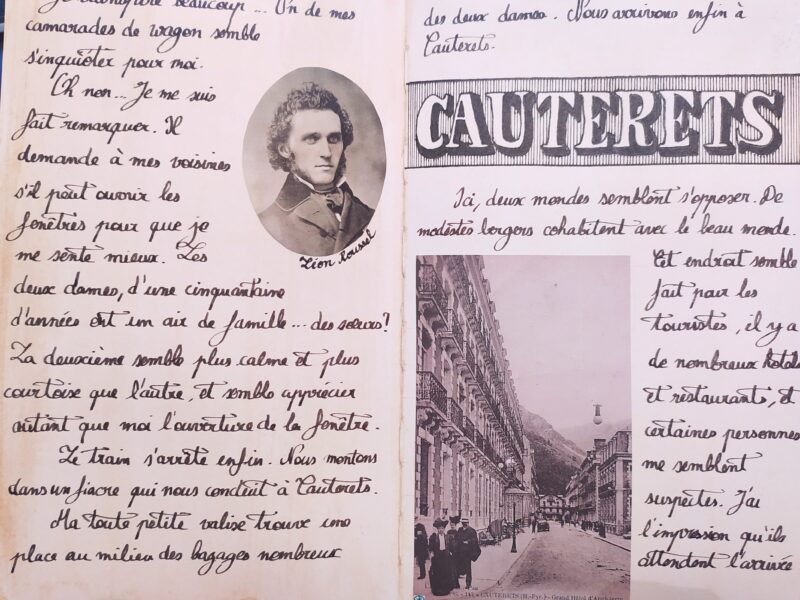 Je transpire beaucoup... Un de mes
camarades de wagon semble
s'inquiéter pour moi.
Oh non... Je me suis
fait remarquer. Il
demande à mes voisines
s'il peut ouvrir les
fenêtres pour que je
me sente mieux. Les
deux dames, d'une cinquantaine
d'années ont un air de famille... des sœurs?
La deuxième semble plus calme et plus
courtoise que l'autre, et semble apprécier
autant que moi l'ouverture de la fenêtre.
Le train s'arrête enfin. Nous montons
dans un fiacre qui nous conduit à Cauterets.
Ma toute petite valise trouve une
place au milieu des bagages nombreux
Léon Roussel
des deux dames. Nous arrivons enfin à
Cauterets.
CAUTERETS
Ici, deux mondes semblent s'opposer. De
modestes bergers cohabitent avec le beau monde.
Cet endroit semble
fait pour les
touristes, il y a
de nombreux hotels
et restaurants, et
certaines personnes
me semblent
suspectes. J'ai
l'impression qu'ils
attendent l'arrivée
CAUTERETS (H.-Pyr.) - Grand Hôtel d'Angleterre